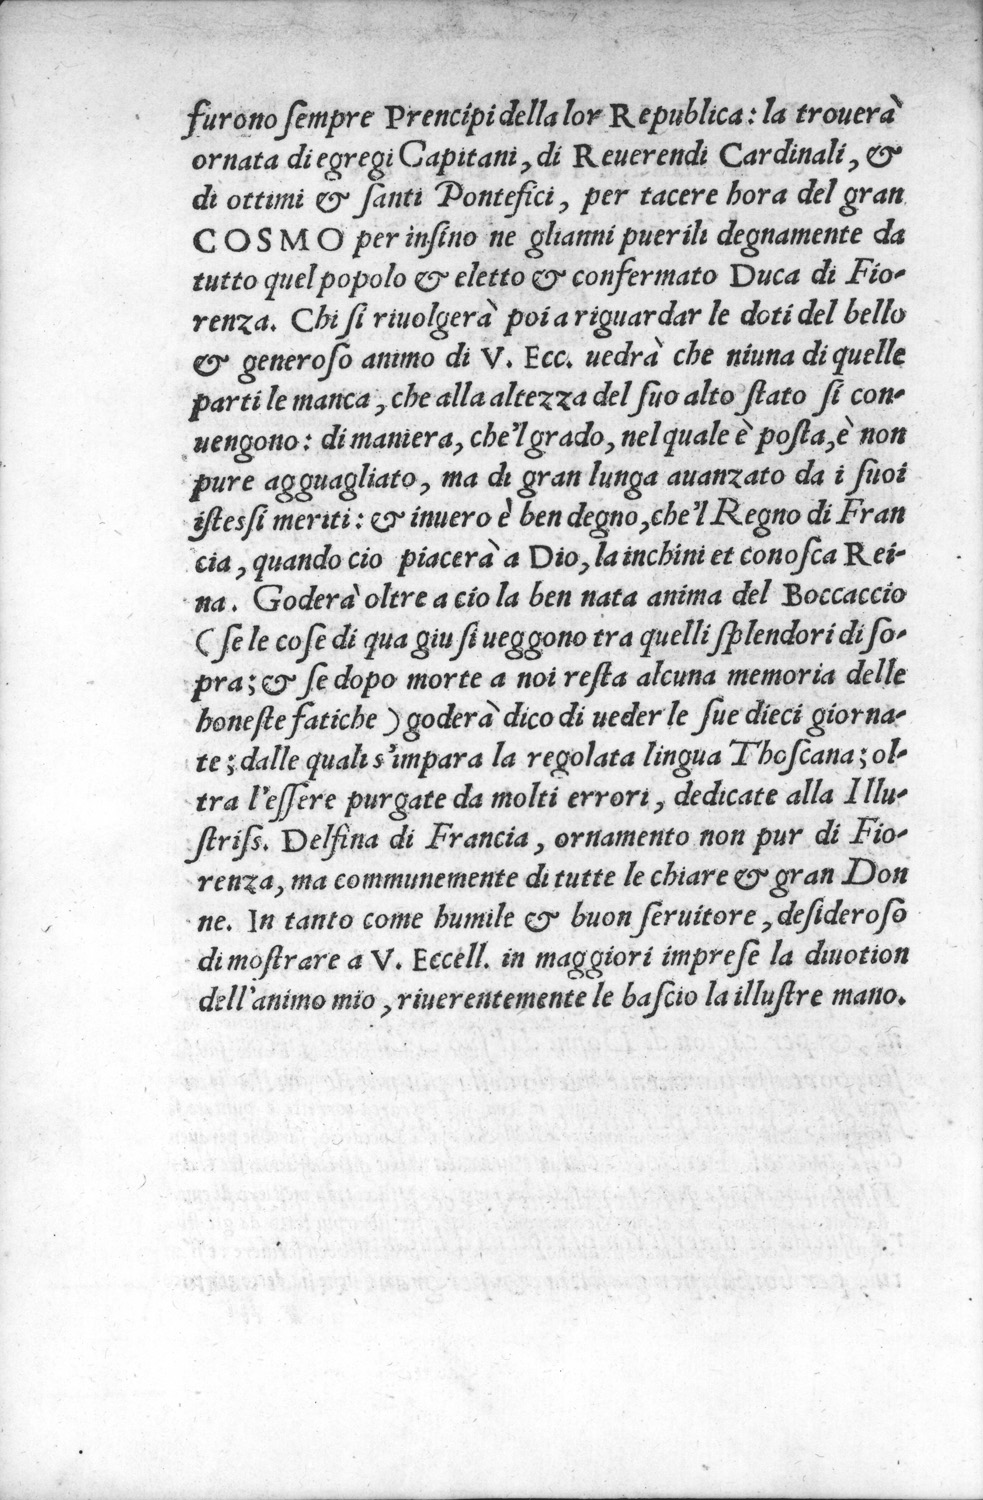 furono ſempre Prencipi della lor Republica: la trouerà
ornata di egregi Capitani, di Reuerendi Cardinali, &
di ottimi & ſanti Ponteſici, per tacere hora del gran
COSMO per inſino ne glianni puerili degnamente da
tutto quel popolo & eletto & confermato Duca di Fio-
renza. Chi ſi riuolgerà poi a riguardar le doti del bello
& generoſo animo di V. Ecc. uedrà che niuna di quelle
parti le manca, che alla altezza del ſuo alto ſtato ſi con-
uengono: di maniera, che'l grado, nel quale è poſta, è non
pure agguagliato, ma di gran lunga auanzato da i ſuoi
iſteſsi meriti: & inuero è ben degno, che'l Regno di Fran
cia, quando cio piacerà a Dio, la inchini et conoſca Rei-
na. Goderà oltre a cio la ben nata anima del Boccaccio
(ſe le coſe di qua giu ſi ueggono tra quelli ſplendori di ſo-
pra; & ſe dopo morte a noi reſta alcuna memoria delle
honeſte fatiche) goderà dico di ueder le ſue dieci giorna-
te; dalle quali s'impara la regolata lingua Thoſcana; ol-
tra l'eſſere purgate da molti errori, dedicate alla Illu-
ſtriſs. Delfina di Francia, ornamento non pur di Fio-
renza, ma communemente di tutte le chiare & gran Don
ne. In tanto come humile & buon ſeruitore, deſideroſo
di moſtrare a V. Eccell. in maggiori impreſe la diuotion
dell'animo mio, riuerentemente le baſcio la illuſtre mano.